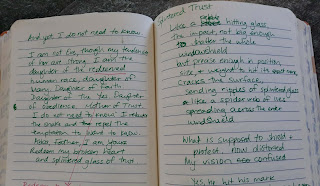 And yet I do not need to know
I am not Eve, though my
if far too strong. I am the
daughter of the redeemed
human race, daughter of
Mary. Daughter of Faith.
Daughter of the Yes. Daughter
of obedience. Mother of Trust.
I do not need to know. I rebuke
the snake and repel the
temptation to have to know.
Abba, Father, I am yours
Redeem my broken heart
and splintered glass of trust
Splintered Trust
Like a pebble hitting glass
The impact, not big enough
to shatter the whole
windshield
but precise enough in position,
size, & weight to hit its mark
Cracks the surface
Sending ripples of splintered glass
like a spider web of lies
spreading across the entire
windshield
What is supposed to shield &
protect now distorted
My vision confused
Yes, it hit his mark